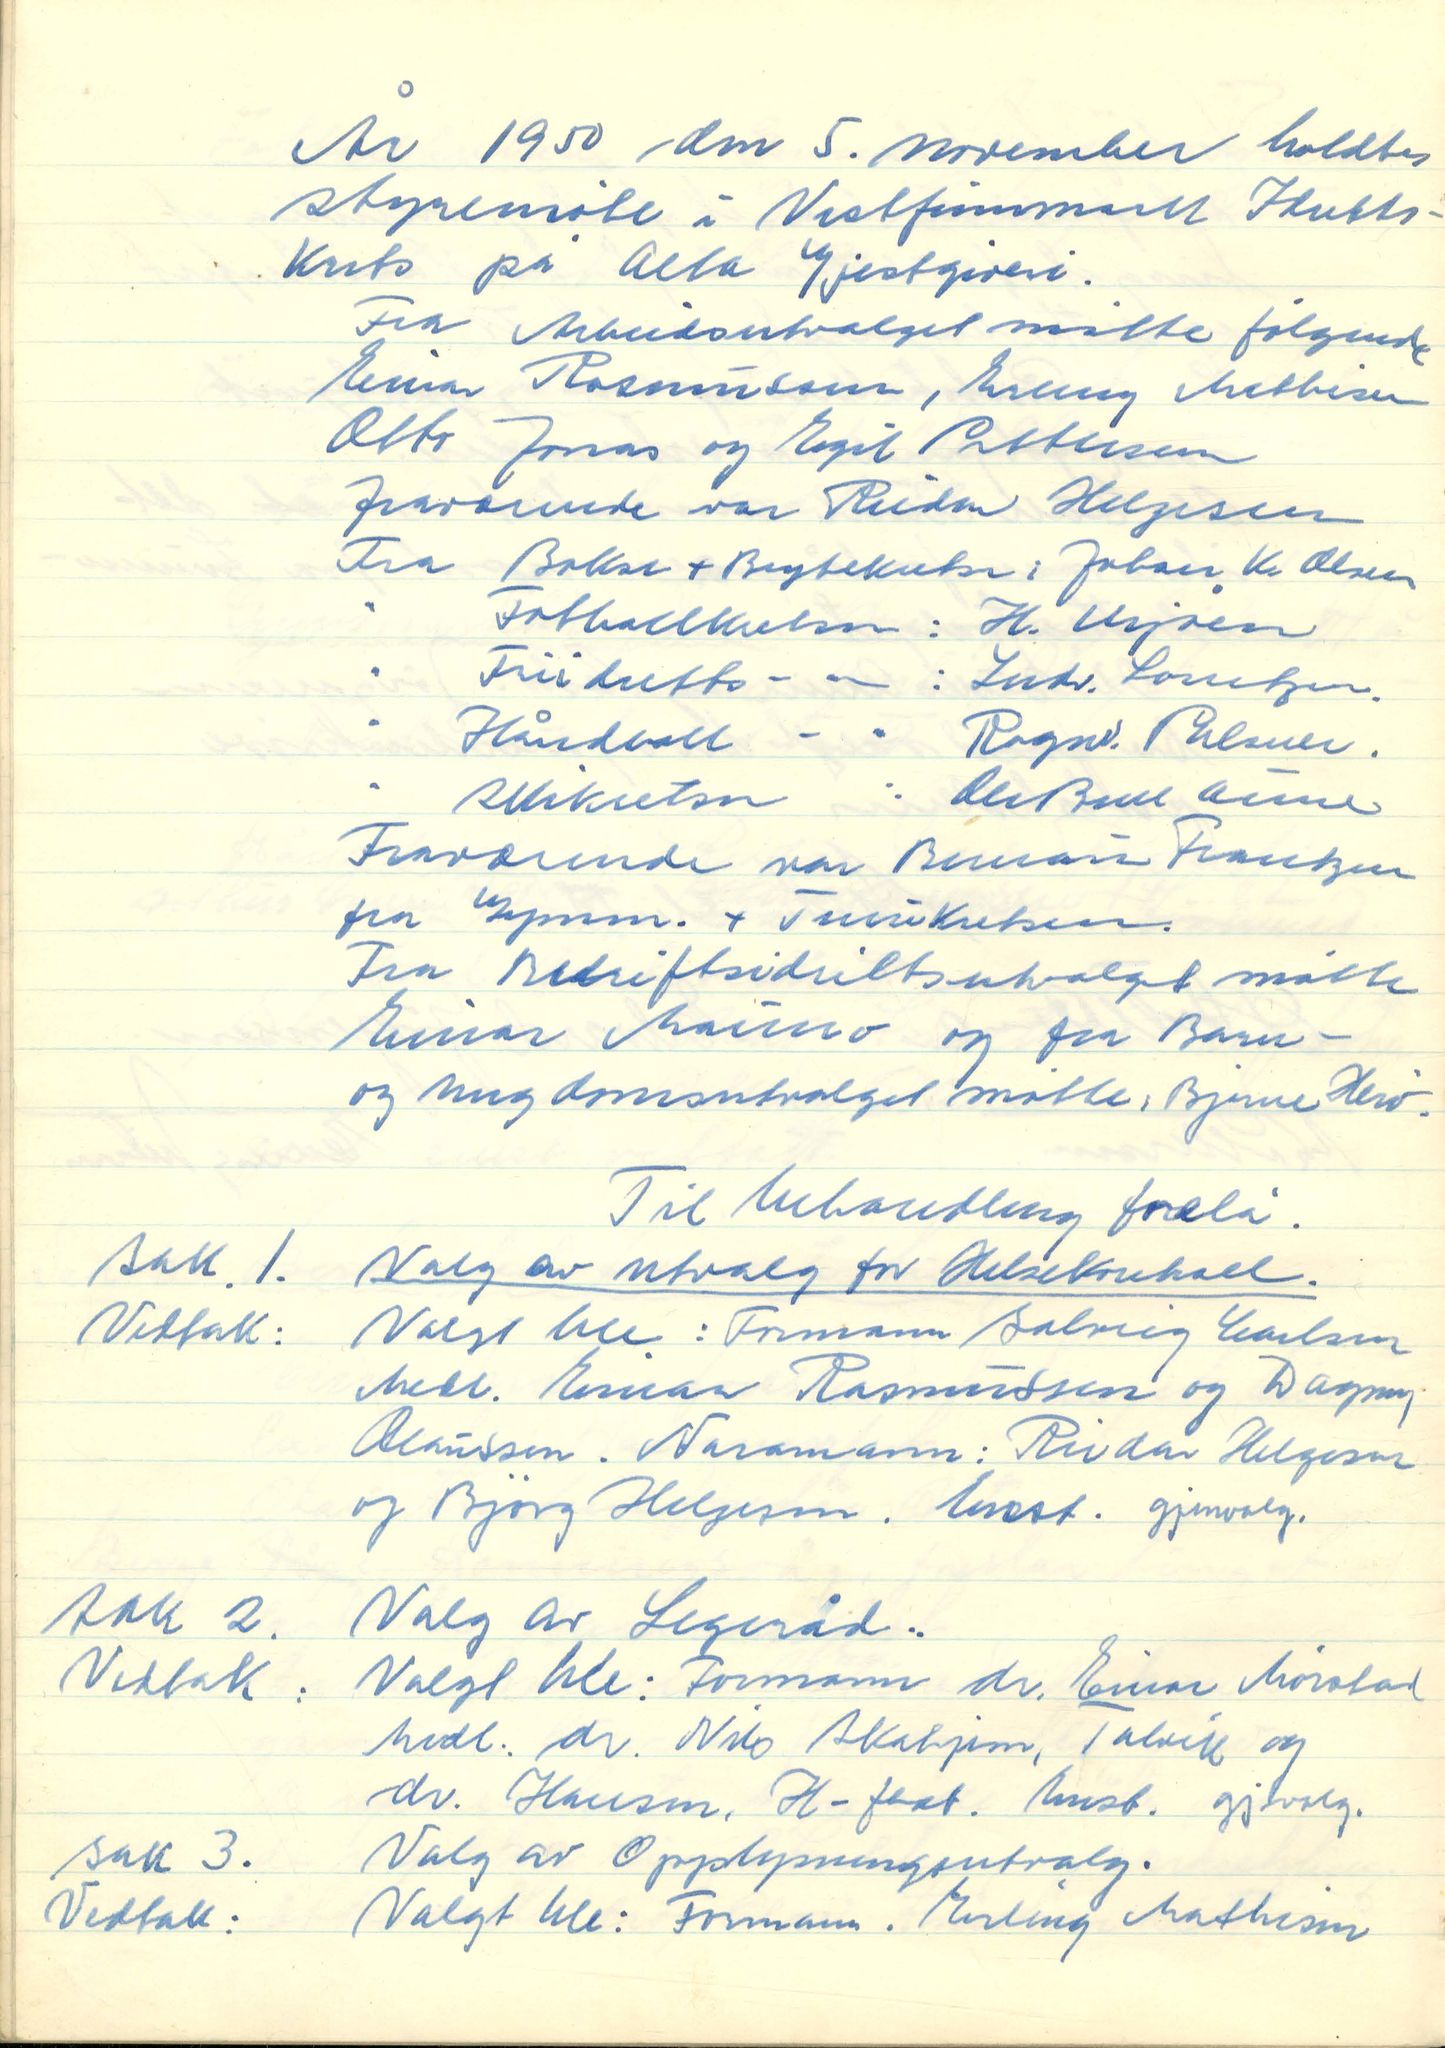 År 1950 den 5. november holdtes
styremøte i Vestfinnmark Idretts-
krets på Alta Gjestgiveri.
Fra Arbeidsutvalget møtte følgende
Einar Rasmussen, Erling Mathisen
Otto Jonas og Egil Pettersen
fraværende var Reidar Helgesen
Fra Bokse + Brytekretsen: Johan K. Olsen
" Fotballkretsen: H.
" Friidretts - " - : Ludv. Lorentzen.
" Håndball - " Ragnv. Pilsner.
" Skikretsen : Ole Bull Aune
Fraværende var Frantzen
fra Gymn. + Turnkretsen.
Fra Bedriftsidrettsutvalget møtte
Einar Mauno og fra Barn-
og Ungdomsutvalget møtte: Bjarne
Til behandling forelå.
Sak. 1. Valg av utvalg for Helsekontroll.
Vedtak: Valgt ble: Formann Solveig Carlsen
Medl. Einar Rasmussen og Dagny
Olaussen. Varamann: Reidar Helgesen
og Björg Helgesen. Enst. gjenvalg.
Sak 2. Valg av Legeråd..
Vedtak: Valgt ble: Formann dr. Einar Mörstad
Medl. dr. Nils Skahjem, Talvik og
dr. Hansen, H-fest. Enst. gjvalg.
Sak 3. Valg av Opplysningsutvalg.
Vedtak: Valgt ble: Formann. Erling Mathisen